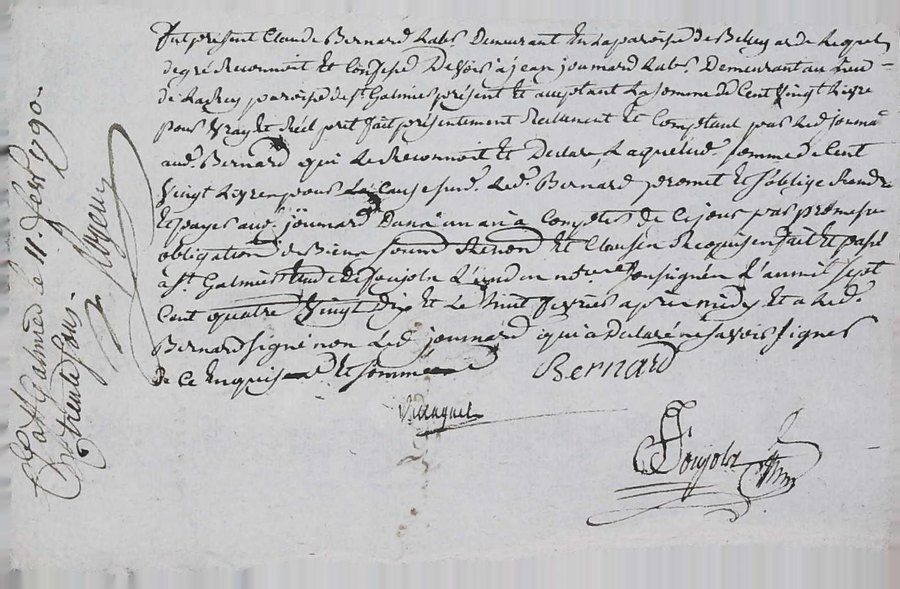 Fut présent Claude Bernard Lab.r Demeurant En la paroisse de Bellegarde Lequel
de gré Reconnoit Et Confesse Devoir a jean joumard Lab.r Demeurant au Lieu
de paroisse de St. Galmier présent Et acceptant La somme de Cent Vingt Livres
pour Vray Et Réel prêt fait présentement Réelement Et Comptant par Led. joumard
aud. Bernard qui Le Reconnoit Et Declare, Laquelle d. somme de Cent
Vingt Livres pour La Cause susd. Led. Bernard promet Et s'oblige Rendre
Et payer aud. joumard Dans un an à Compter de Ce jour par promesse
obligation de Biens soum.on Renon.on Et Clauses Requises fait Et passé
à St. Galmier Etude de Soujola L'un des notres soussignés L'an mil sept
Cent quatre Vingt Dix Et Le huit fevrier après midy Et a Led.
Bernard signé non Led. joumard qui a Declaré ne savoir signer
de Ce Enquis Et sommé
Bernard
Soujola
a St Galmier le 11. fevr 1790.
trente sous.